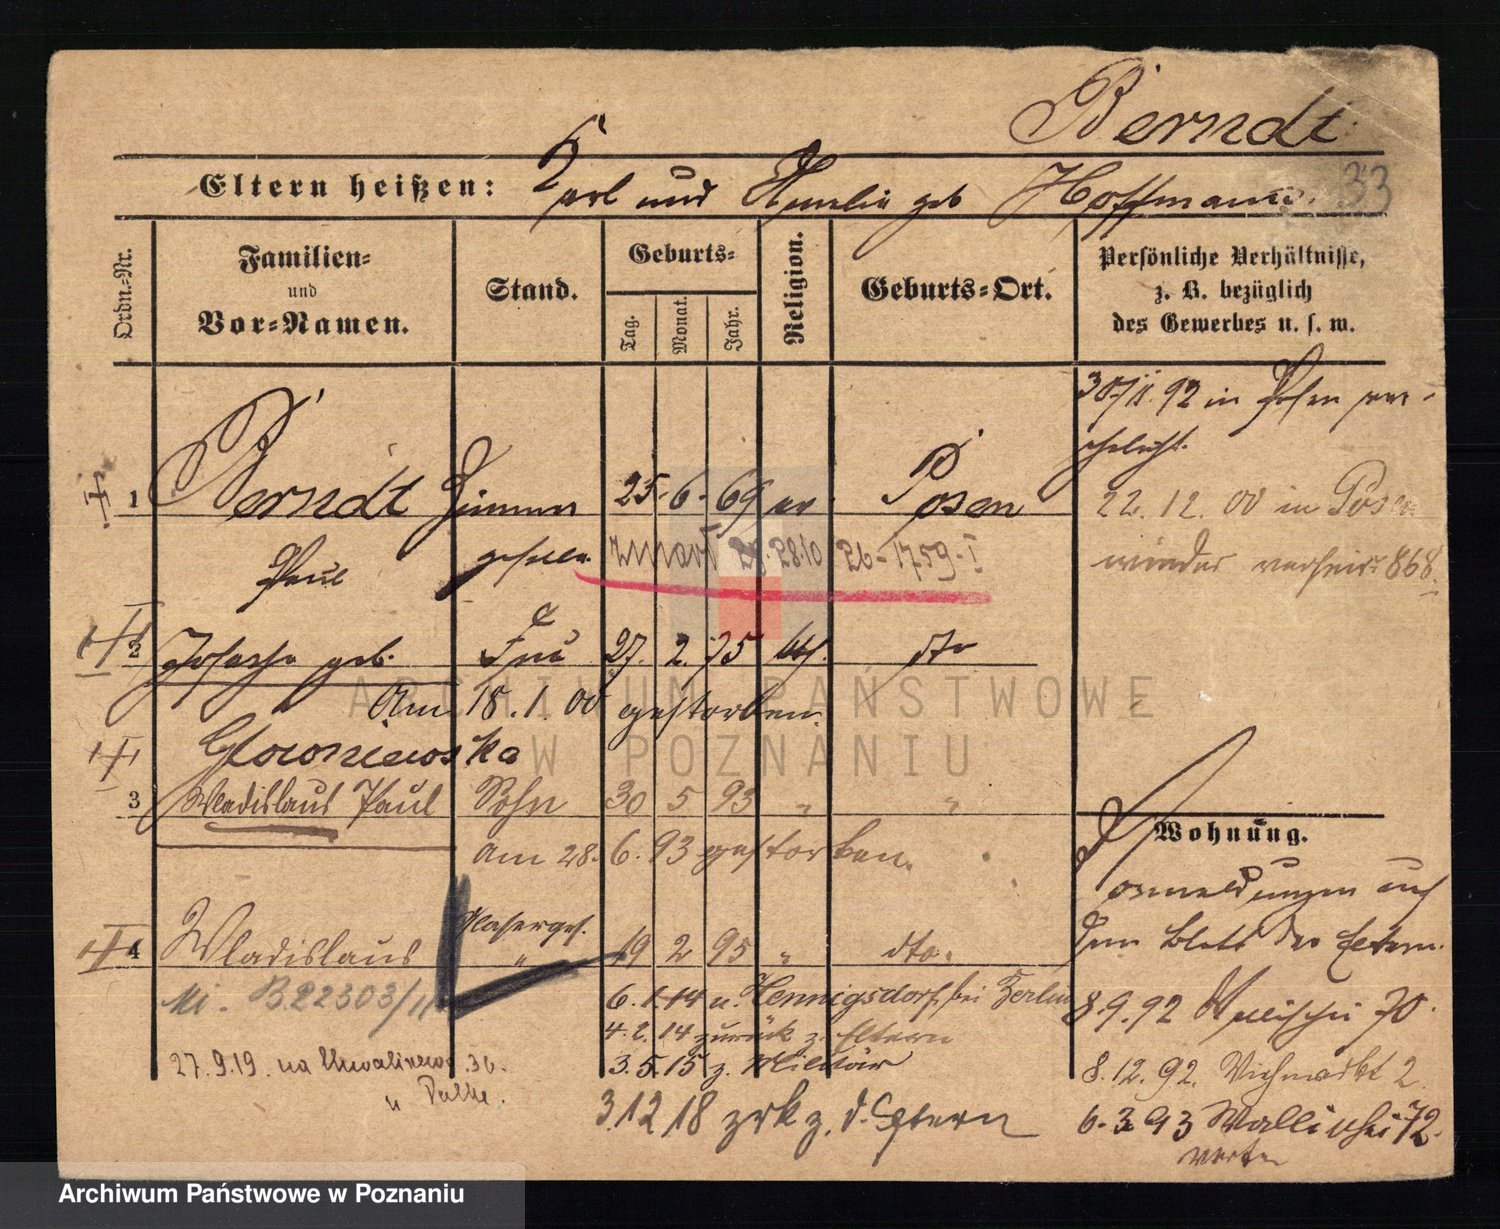 Berndt
Eltern heißen: Karl und Amalie geb Hoffmann. 33
Ordn.-Nr.
Familien-
und
Vor-Namen.
Stand.
Geburts-
Tag.
Monat.
Jahr.
Religion.
Geburts-Ort.
Persönliche Verhältnisse,
z. B. bezüglich
des Gewerbes u. s. w.
30/11.92 in Posen ver-
ehelicht.
1 Berndt Zimmer 25. 6. 69 ev Posen
22.12.00 in Posen
Paul geselle zmarł 28.10 26-1759-I
wieder verheir. 868.
2 Josepha geb. Frau 27. 2. 75 kth. dto
Am 18.1.00 gestorben.
Glowniewska
3 Wladislaus Paul Sohn 30 5 93 " "
am 28. 6. 93 gestorben.
Wohnung.
anmeldungen auf
dem Blatt der Eltern.
Glaserges.
4 Wladislaus " 19 2 95 " dto.
Mi. B22303/11
6.1.14 n. Hennigsdorf bei Berlin
4.2.14 zurück z. Eltern
3.5.15 z. Militär
3.12.18 zrk z. d. Eltern
27.9.19. na Chwaliszewo 36.
u
8.9.92 Wallischei 70.
8.12.92. Viehmarkt 2.
6.3.93 Wallischei 72.
ARCHIWUM PAŃSTWOWE
W POZNANIU
Archiwum Państwowe w Poznaniu